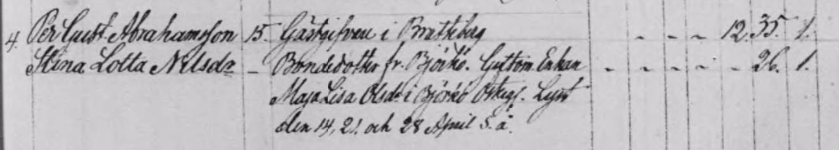 4. Per Gust. Abrahamsson 15. Gästgifven i Bratteberg 12. 35. 1.
Stina Lotta Nilsdr – Bondedotter fr. Björkö. Enkan 26. 1.
Maja Lisa Olsdr i Björkö Lyst
den 14, 21 och 28 April s. å.